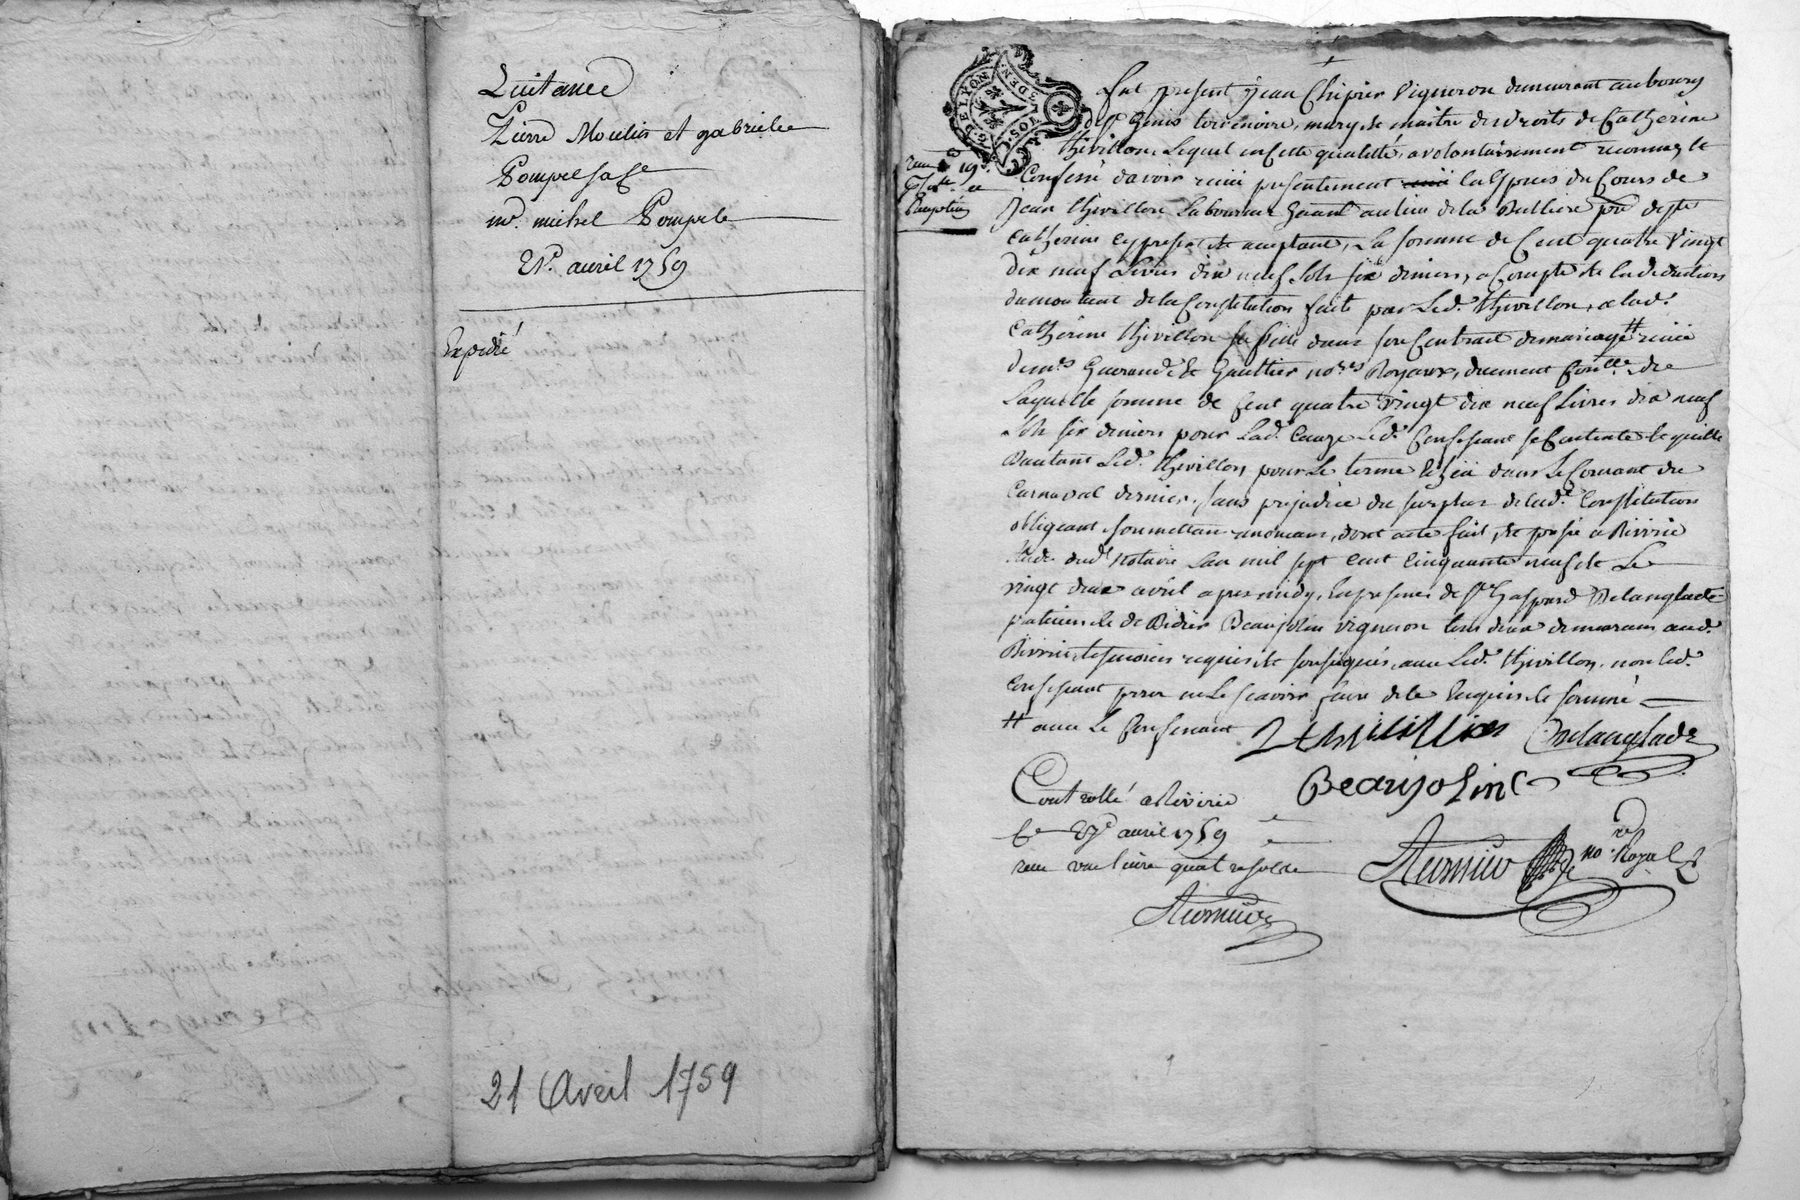 Quitance
Pierre Moulin et gabrielle
Pompel sa fe
me. michel Pompele
21e. avril 1759
Expedié
21 Avril 1759
G. DE LYON
SOLS DEN.
Fut present jean Chipier Vigneron demeurant au bourg
de st Genis terrenoire, mary et maitre des droits de Catherine
thivillon, Lequel en cette qualitté, a volontairement reconnu et
Confessé d'avoir reçu presentement en Espèces du Cours de
jean thivillon Laboureur Granger au lieu de la
Catherine cy present et aceptant, La somme de Cent quatre Vingt
Dix neuf Livres dix neuf sols six deniers, a Compte et en deduction
du montant de la Constitution faite par Led. thivillon, a lad.
Catherine thivillon sa fille dans son Contrat de mariage # reçu
de mes Guerand et Gaultier nores Royaux, duement Conllé. de
Laquelle somme de Cent quatre vingt dix neuf Livres dix neuf
sols six deniers pour Lad. Cauze Led. Confessant se Contente et quitte
D'autant Led. thivillon pour Le terme Echeu dans Le Courant du
Carnaval dernier, sans prejudice du surplus de lad. Constitution
obligeant soumettant renonceant, dont acte fait, et passé a Riverie
Etude dud. Notaire L'an mil sept cent Cinquante neuf et Le
vingt deux avril apres midy, En presence de sr. Gaspard Delanglade
praticien et de Didier Beaujolin vigneron tous deux demeurans aud.
Riverie, temoins requis et soussignés, avec Led. thivillon, non led.
Confessant pour ne Le scavoir faire de ce Enquis et sommé
# avec Le Confessant
thivillion Delanglade
Beaujolin
Controllé a Riverie
le 27e avril 1759
reçu une livre quatre sols
no. Royal